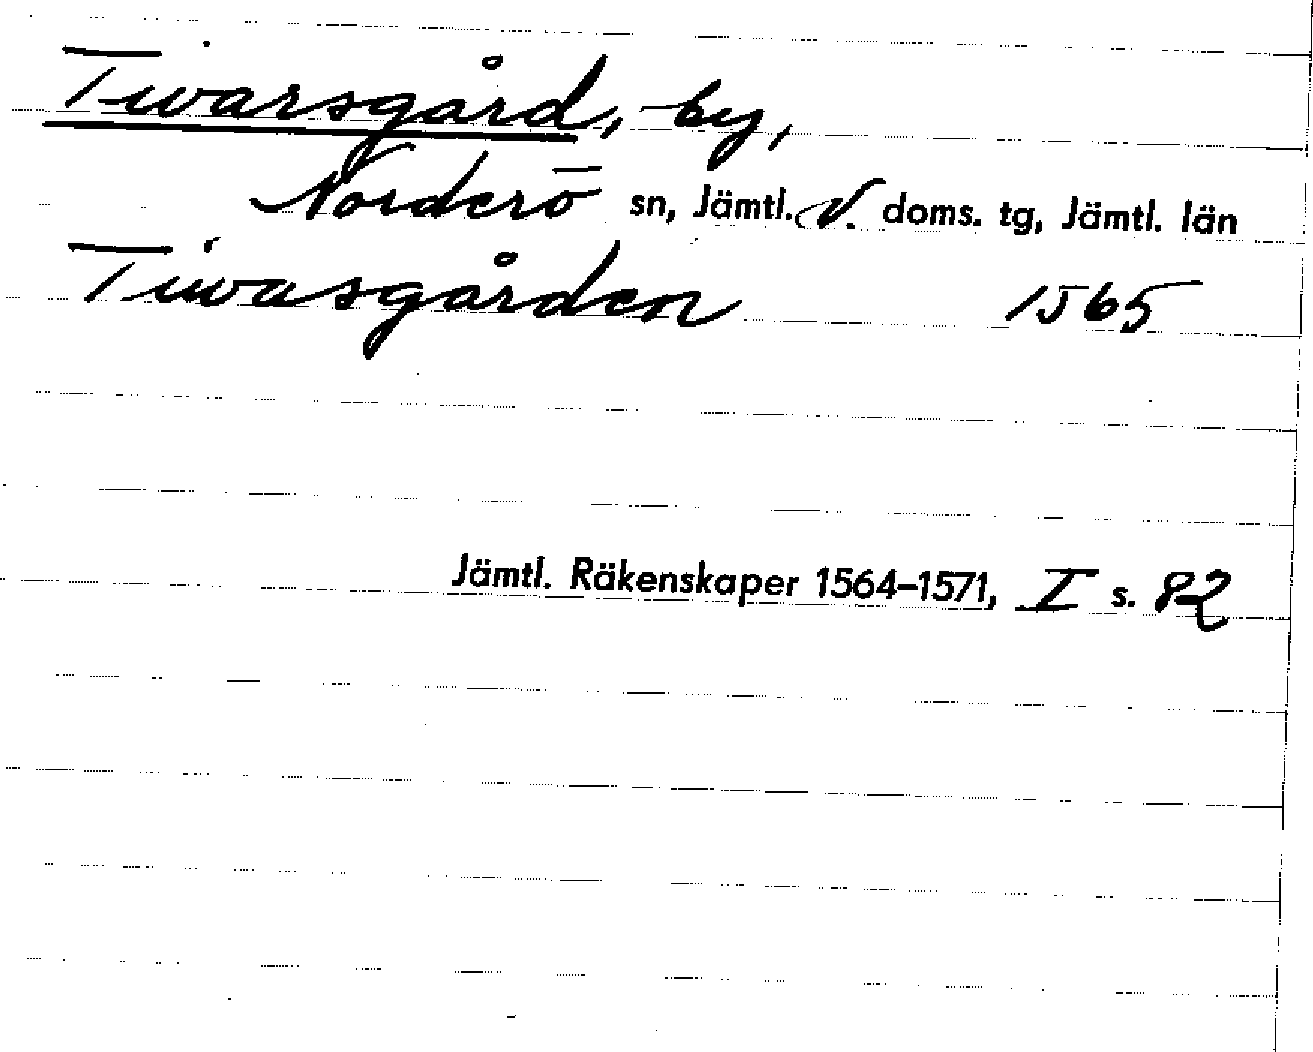 Tivarsgård, by,
Norderö sn, Jämtl. V. doms. tg, Jämtl. län
Tiivasgården 1565
Jämtl. Räkenskaper 1564–1571, I s. 82